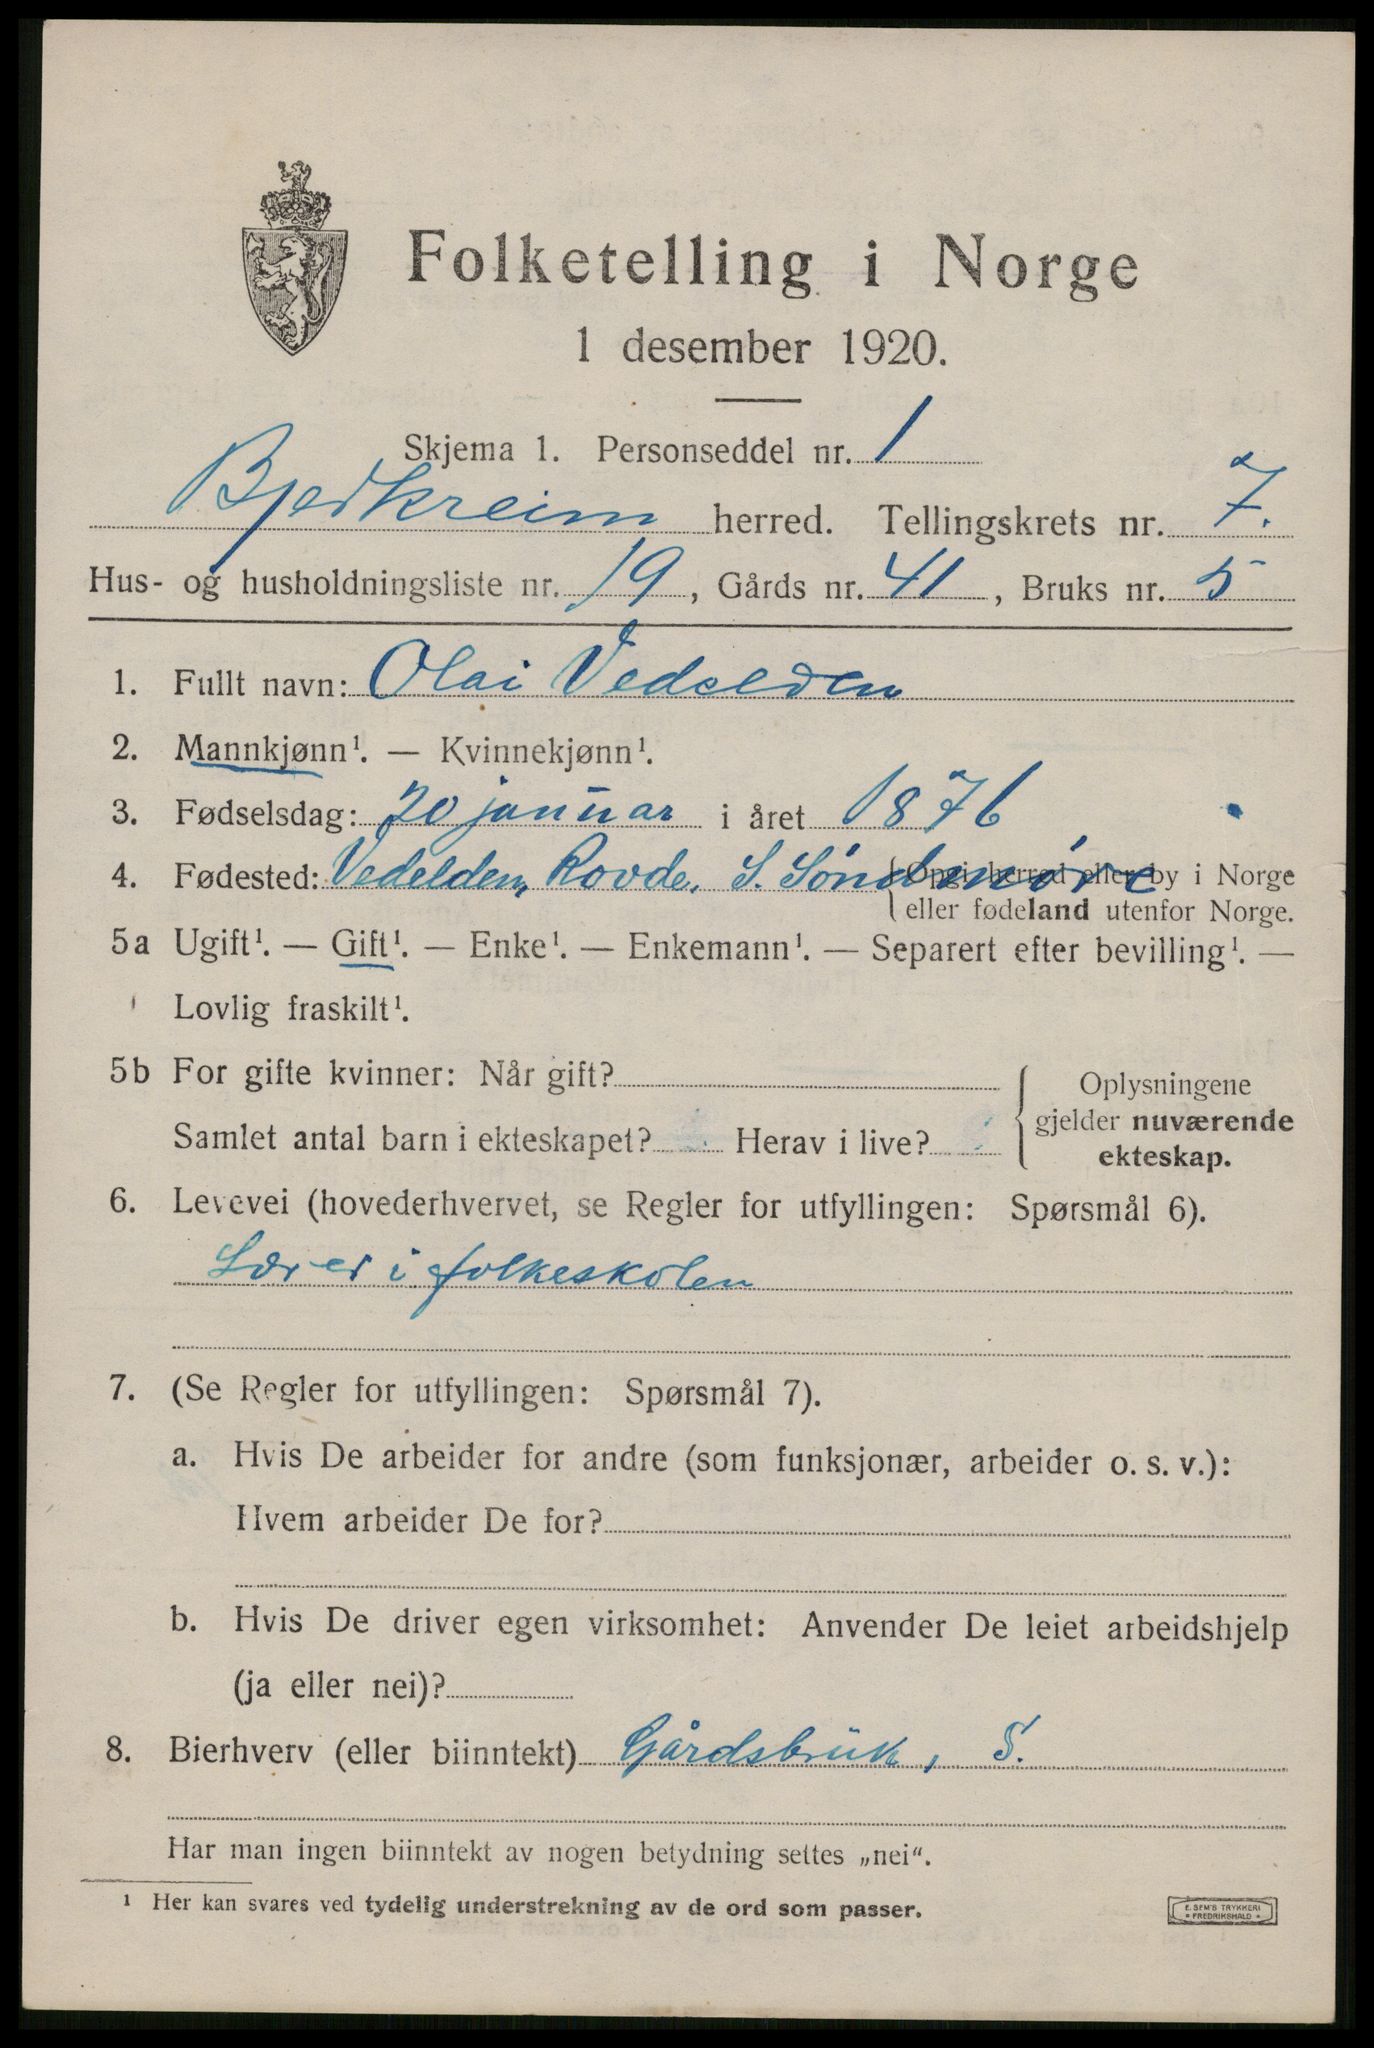 Folketelling i Norge
1 desember 1920.
Skjema 1. Personseddel nr. 1
Bjerkreim herred. Tellingskrets nr. 7.
Hus- og husholdningsliste nr. 19, Gårds nr. 41, Bruks nr. 5
1. Fullt navn: Olai Vedelden
2. Mannkjønn¹. — Kvinnekjønn¹.
3. Fødselsdag: 20 januar i året 1876
4. Fødested: Vedelden, Rovde, S. Søndmøre {Opgi herred eller by i Norge
eller fødeland utenfor Norge.
5a Ugift¹. — Gift¹. — Enke¹. — Enkemann¹. — Separert efter bevilling¹. —
Lovlig fraskilt¹.
5b For gifte kvinner: Når gift?
Samlet antal barn i ekteskapet? Herav i live?
Oplysningene
gjelder nuværende
ekteskap.
6. Levevei (hovederhvervet, se Regler for utfyllingen: Spørsmål 6).
Lærer i folkeskolen
7. (Se Regler for utfyllingen: Spørsmål 7).
a. Hvis De arbeider for andre (som funksjonær, arbeider o. s. v.):
Hvem arbeider De for?
b. Hvis De driver egen virksomhet: Anvender De leiet arbeidshjelp
(ja eller nei)?
8. Bierhverv (eller biinntekt) Gårdsbruk, S.
Har man ingen biinntekt av nogen betydning settes „nei“.
¹ Her kan svares ved tydelig understrekning av de ord som passer.
E. SEM'S TRYKKERI
FREDRIKSHALD